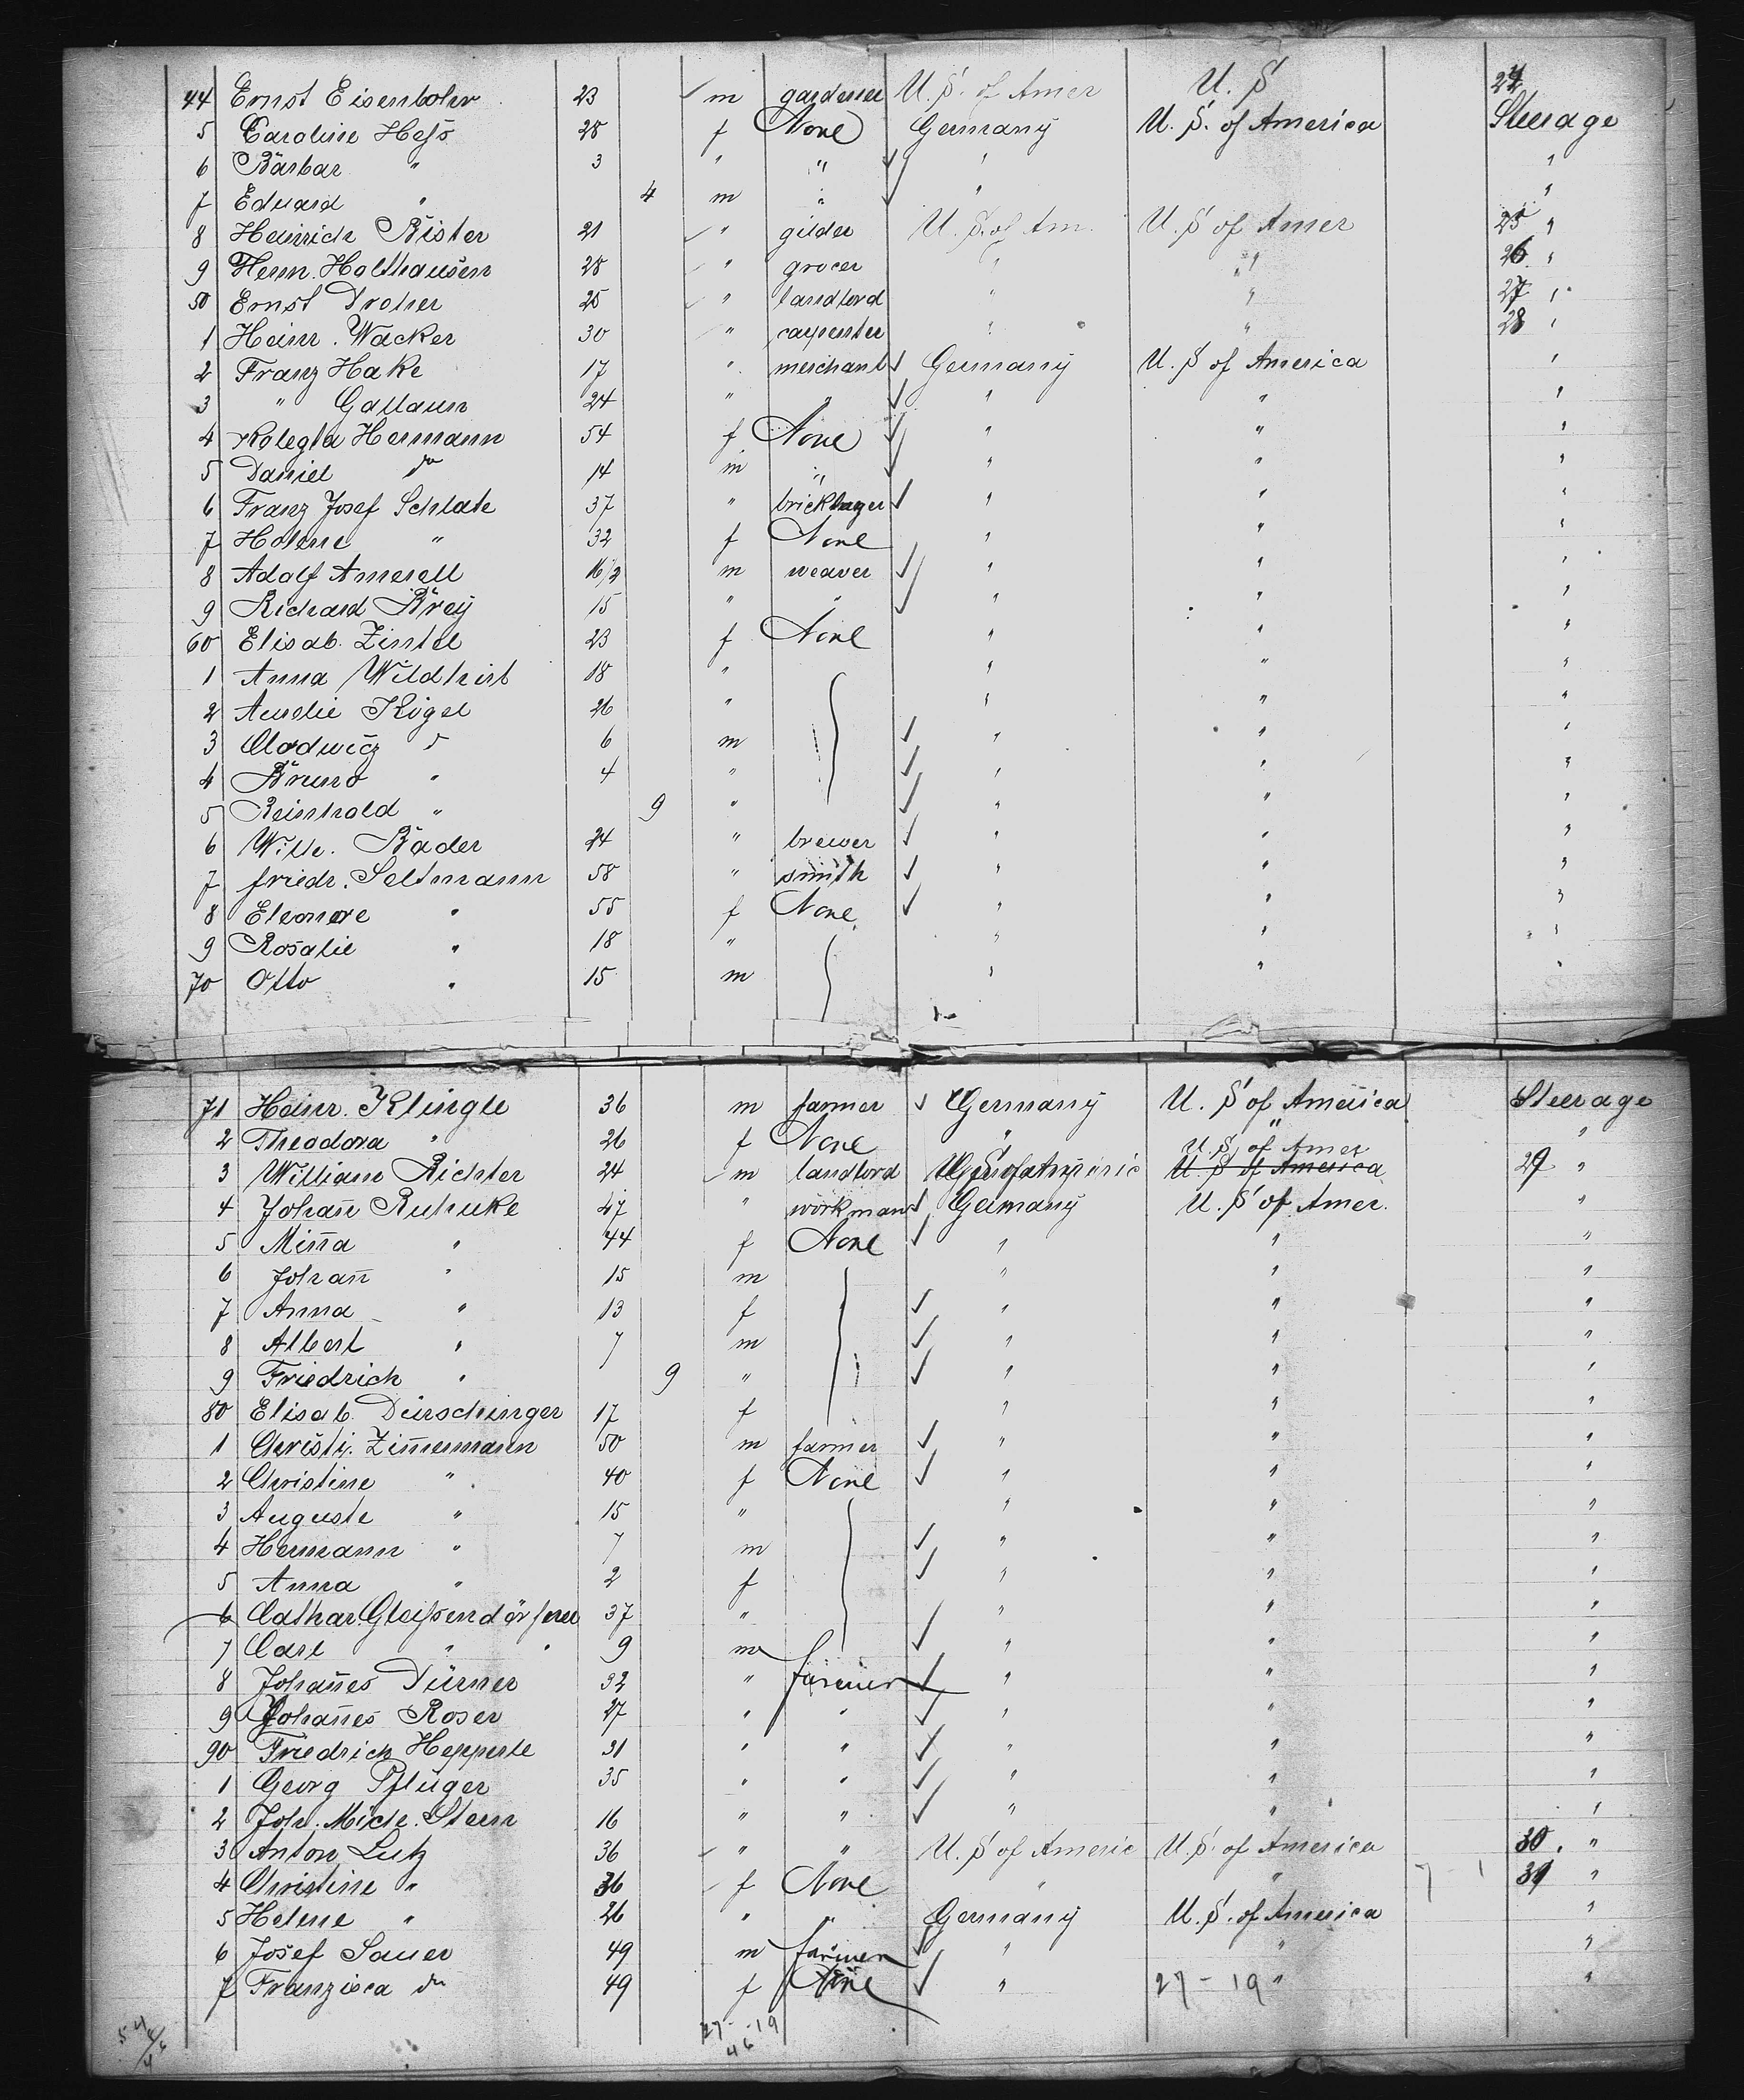 44 Ernst Eisenbohr 23 m gardener U.S. of Amer U.S 24
5 Caroline Heß 28 f None Germany U.S. of America Steerage
6 Barbar " 3 " " " "
7 Eduard " 4 m " " "
8 Heinrich Bister 21 " gilder U.S. of Am. U.S of Amer 25 "
9 Herm. Holthausen 28 " grocer " " 26 "
50 Ernst Droher 25 " landlord " " 27 "
1 Heinr. Wacker 30 " carpenter " " 28 "
2 Franz Hake 17 " merchant Germany U.S of America "
3 " Gallaun 24 " " " " "
4 Hermann 54 f None " " "
5 Daniel do 14 m " " " "
6 Franz Josef Schlate 37 " bricklayer " " "
7 Helene " 32 f None " " "
8 Adolf Amerell 16/2 m weaver " " "
9 Richard Krey 15 " " " " "
60 Elisab. Zintel 23 f None " " "
1 Anna Wildhirt 18 " " " "
2 Aurelie Kögel 26 " " " "
3 6 m " " "
4 Bruno " 4 " " " "
5 Reinhold " 9 " " " "
6 Wilh. Bader 24 " brewer " " "
7 friedr. Seltmann 58 " smith " " "
8 Eleonore " 55 f None " " "
9 Rosalie " 18 " " " "
70 Otto " 15 m " " "
71 Heinr. Klingle 36 m farmer Germany U.S of America Steerage
2 Theodora " 26 f None " " "
U.S. of Amer
3 William Richter 24 m landlord U.S of Americ U.S of America 29 "
4 Johan̄ Ruhnke 47 " workman Germany U.S of Amer. "
5 Min̄a " 44 f None " " "
6 Johan̄ " 15 m " " "
7 Anna " 13 f " " "
8 Albert " 7 m " " "
9 Friedrich " 9 " " " "
80 Elisab. Dürschinger 17 f " " "
1 Christi. Zim̄ermann 50 m farmer " " "
2 Christine " 40 f None " " "
3 Auguste " 15 " " " "
4 Hermann " 7 m " " "
5 Anna " 2 f " " "
6 Cathar. Gleißendörferer 37 " " " "
7 Carl " 9 m " " "
8 Johan̄es Dürner 32 " farmer " " "
9 Johan̄es Roser 27 " " " " "
90 Friedrich Hepperle 31 " " " " "
1 Georg Pflüger 35 " " " " "
2 Joh. Mich. Stern 16 " " " " "
3 Anton Lutz 36 " " U.S of Americ U.S. of America 30. "
4 Christine " 36 f None " " 7 1 31 "
5 Helene " 26 " " Germany U.S. of America "
6 Josef Sauer 49 m farmer " " "
7 Franzisca do 49 f None " 27-19 " "
27--19
46